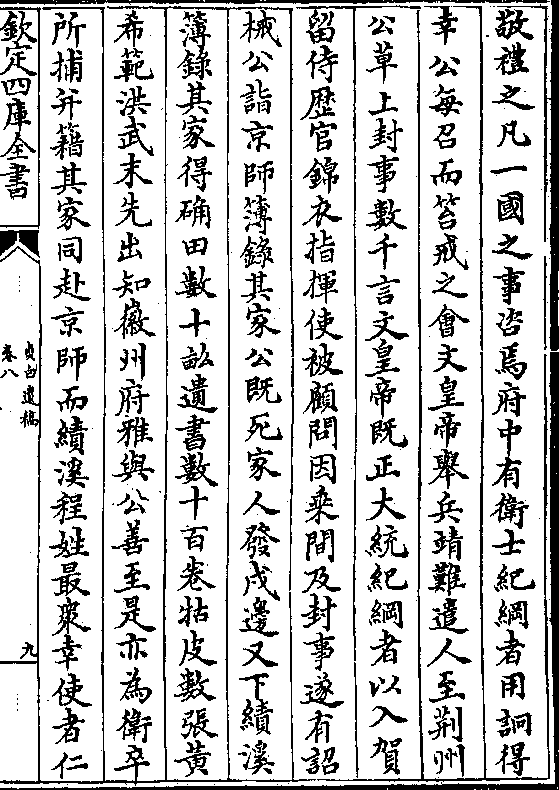 敬禮之凡一國之事咨焉府中有衛士紀綱者用詗得
幸公每召而笞戒之會文皇帝舉兵靖難遣人至荆州
公草上封事數千言文皇帝既正大統紀綱者以入賀
留侍歴官錦衣指揮使被顧問因乗間及封事遂有詔
械公詣京師簿錄其家公既死家人發戍邊又下績溪
簿錄其家得确田數十畝遺書數十百卷牯皮數張黄
希範洪武末先出知徽州府雅與公善至是亦為衛卒
所捕并籍其家同赴京師而績溪程姓最衆幸使者仁
欽定四庫全書
貞白遺稿
卷八
九